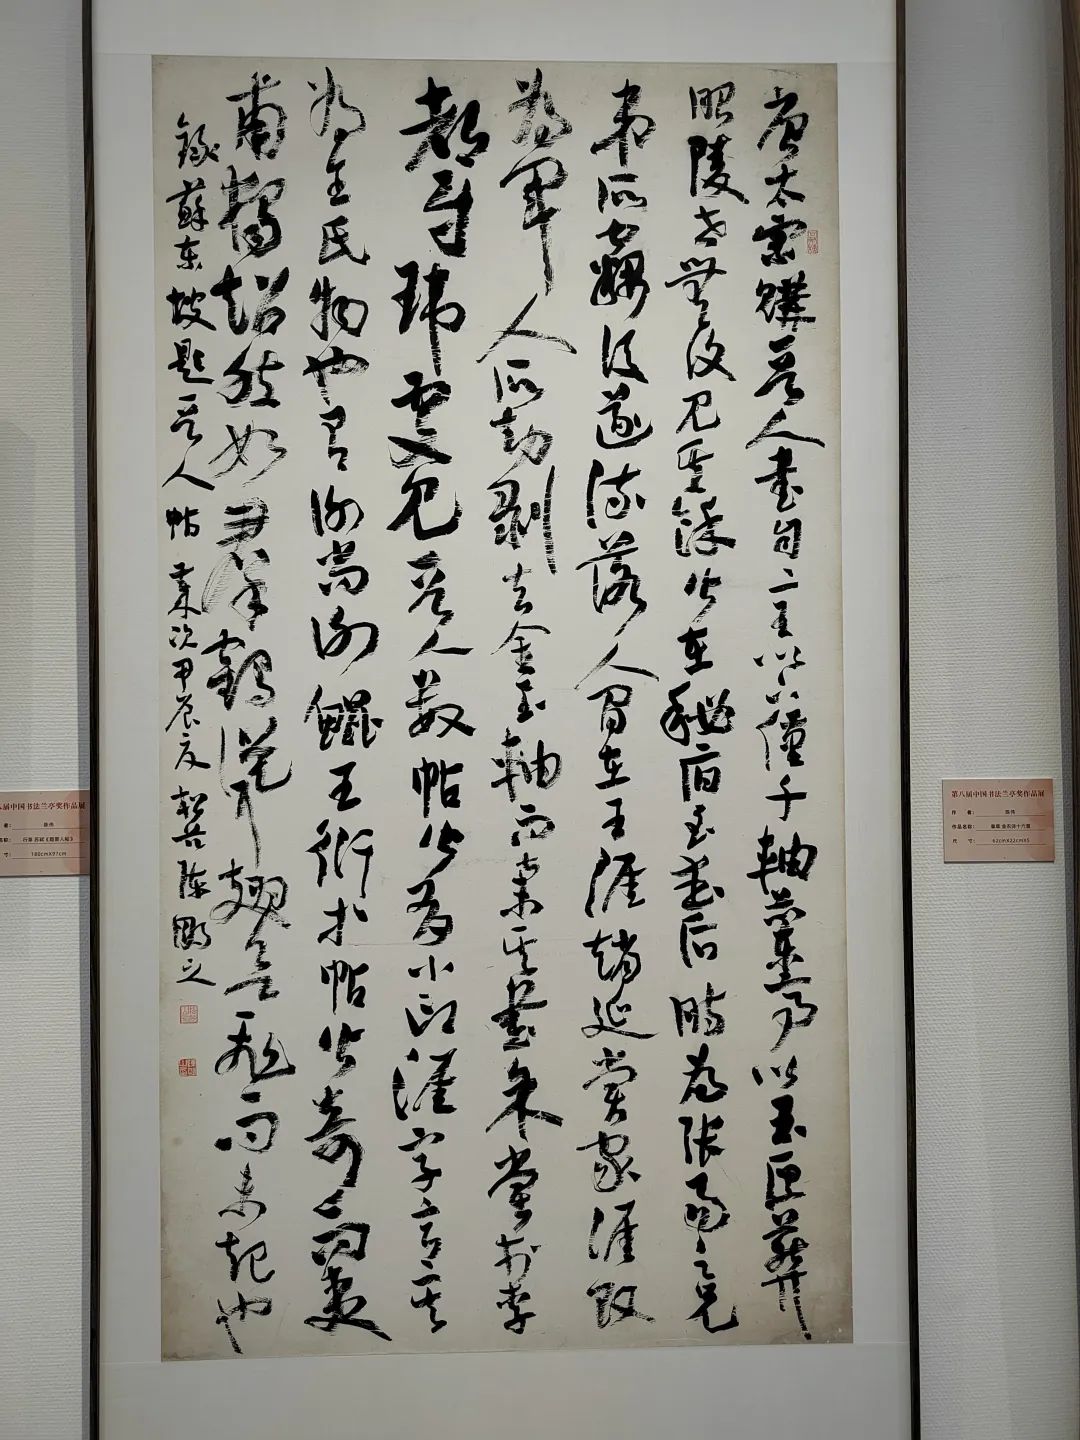 唐太宗購晉人書自二王以下僅千軸蘭亭以玉匣葬
昭陵世無復見其餘皆在秘府至武后時為張易之兄
弟所竊後遂流落人間在王涯延賞家涯敗
為軍人所劫剝去金玉軸而棄其書余嘗於李
都尉瑋處見晉人數帖皆有小印涯字意其
為王氏物也有謝尚謝鯤王衍等帖皆奇而夷
甫獨超然如羣鶴聳翅欲飛而未起也
錄蘇東坡題晉人帖 歲次甲辰夏 陳鵬之
八届中国书法兰亭奖作品展
者：
名称： 行草 苏轼《题晋人帖》
寸： 180cmX97cm
第八届中国书法兰亭奖作品展
作 者： 陈伟
作品名称：
尺 寸： 62cmX22cmX5